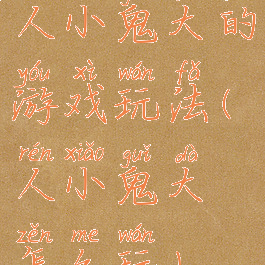 人小鬼大的
yóu xì wán fǎ
游戏玩法(
rén xiǎo guǐ dà
人小鬼大
zěn me wán
怎么玩)